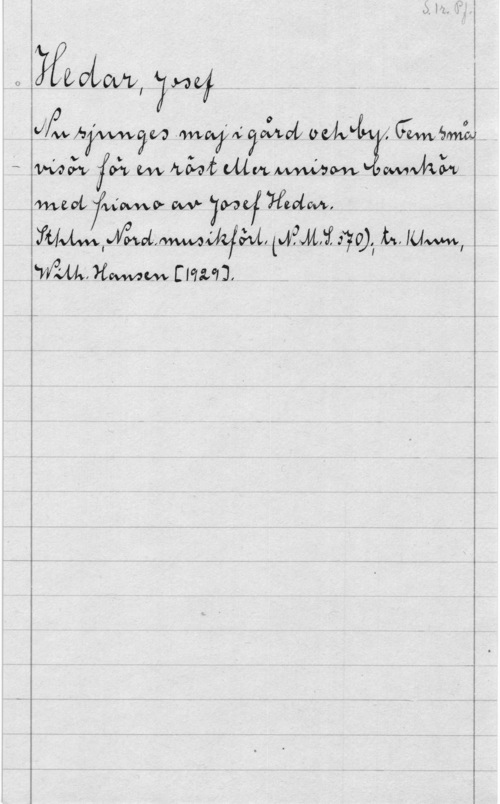 S. 1r. Pf.
Hedar, Josef
Nu sjunges maj i gård och by. Fem små
visor för en röst eller unison barnkör
med piano av Josef Hedar.
Sthlm, Nord. musikförl. (N.M.S. 570); tr. Khvn,
Wilh. Hansen [1929].